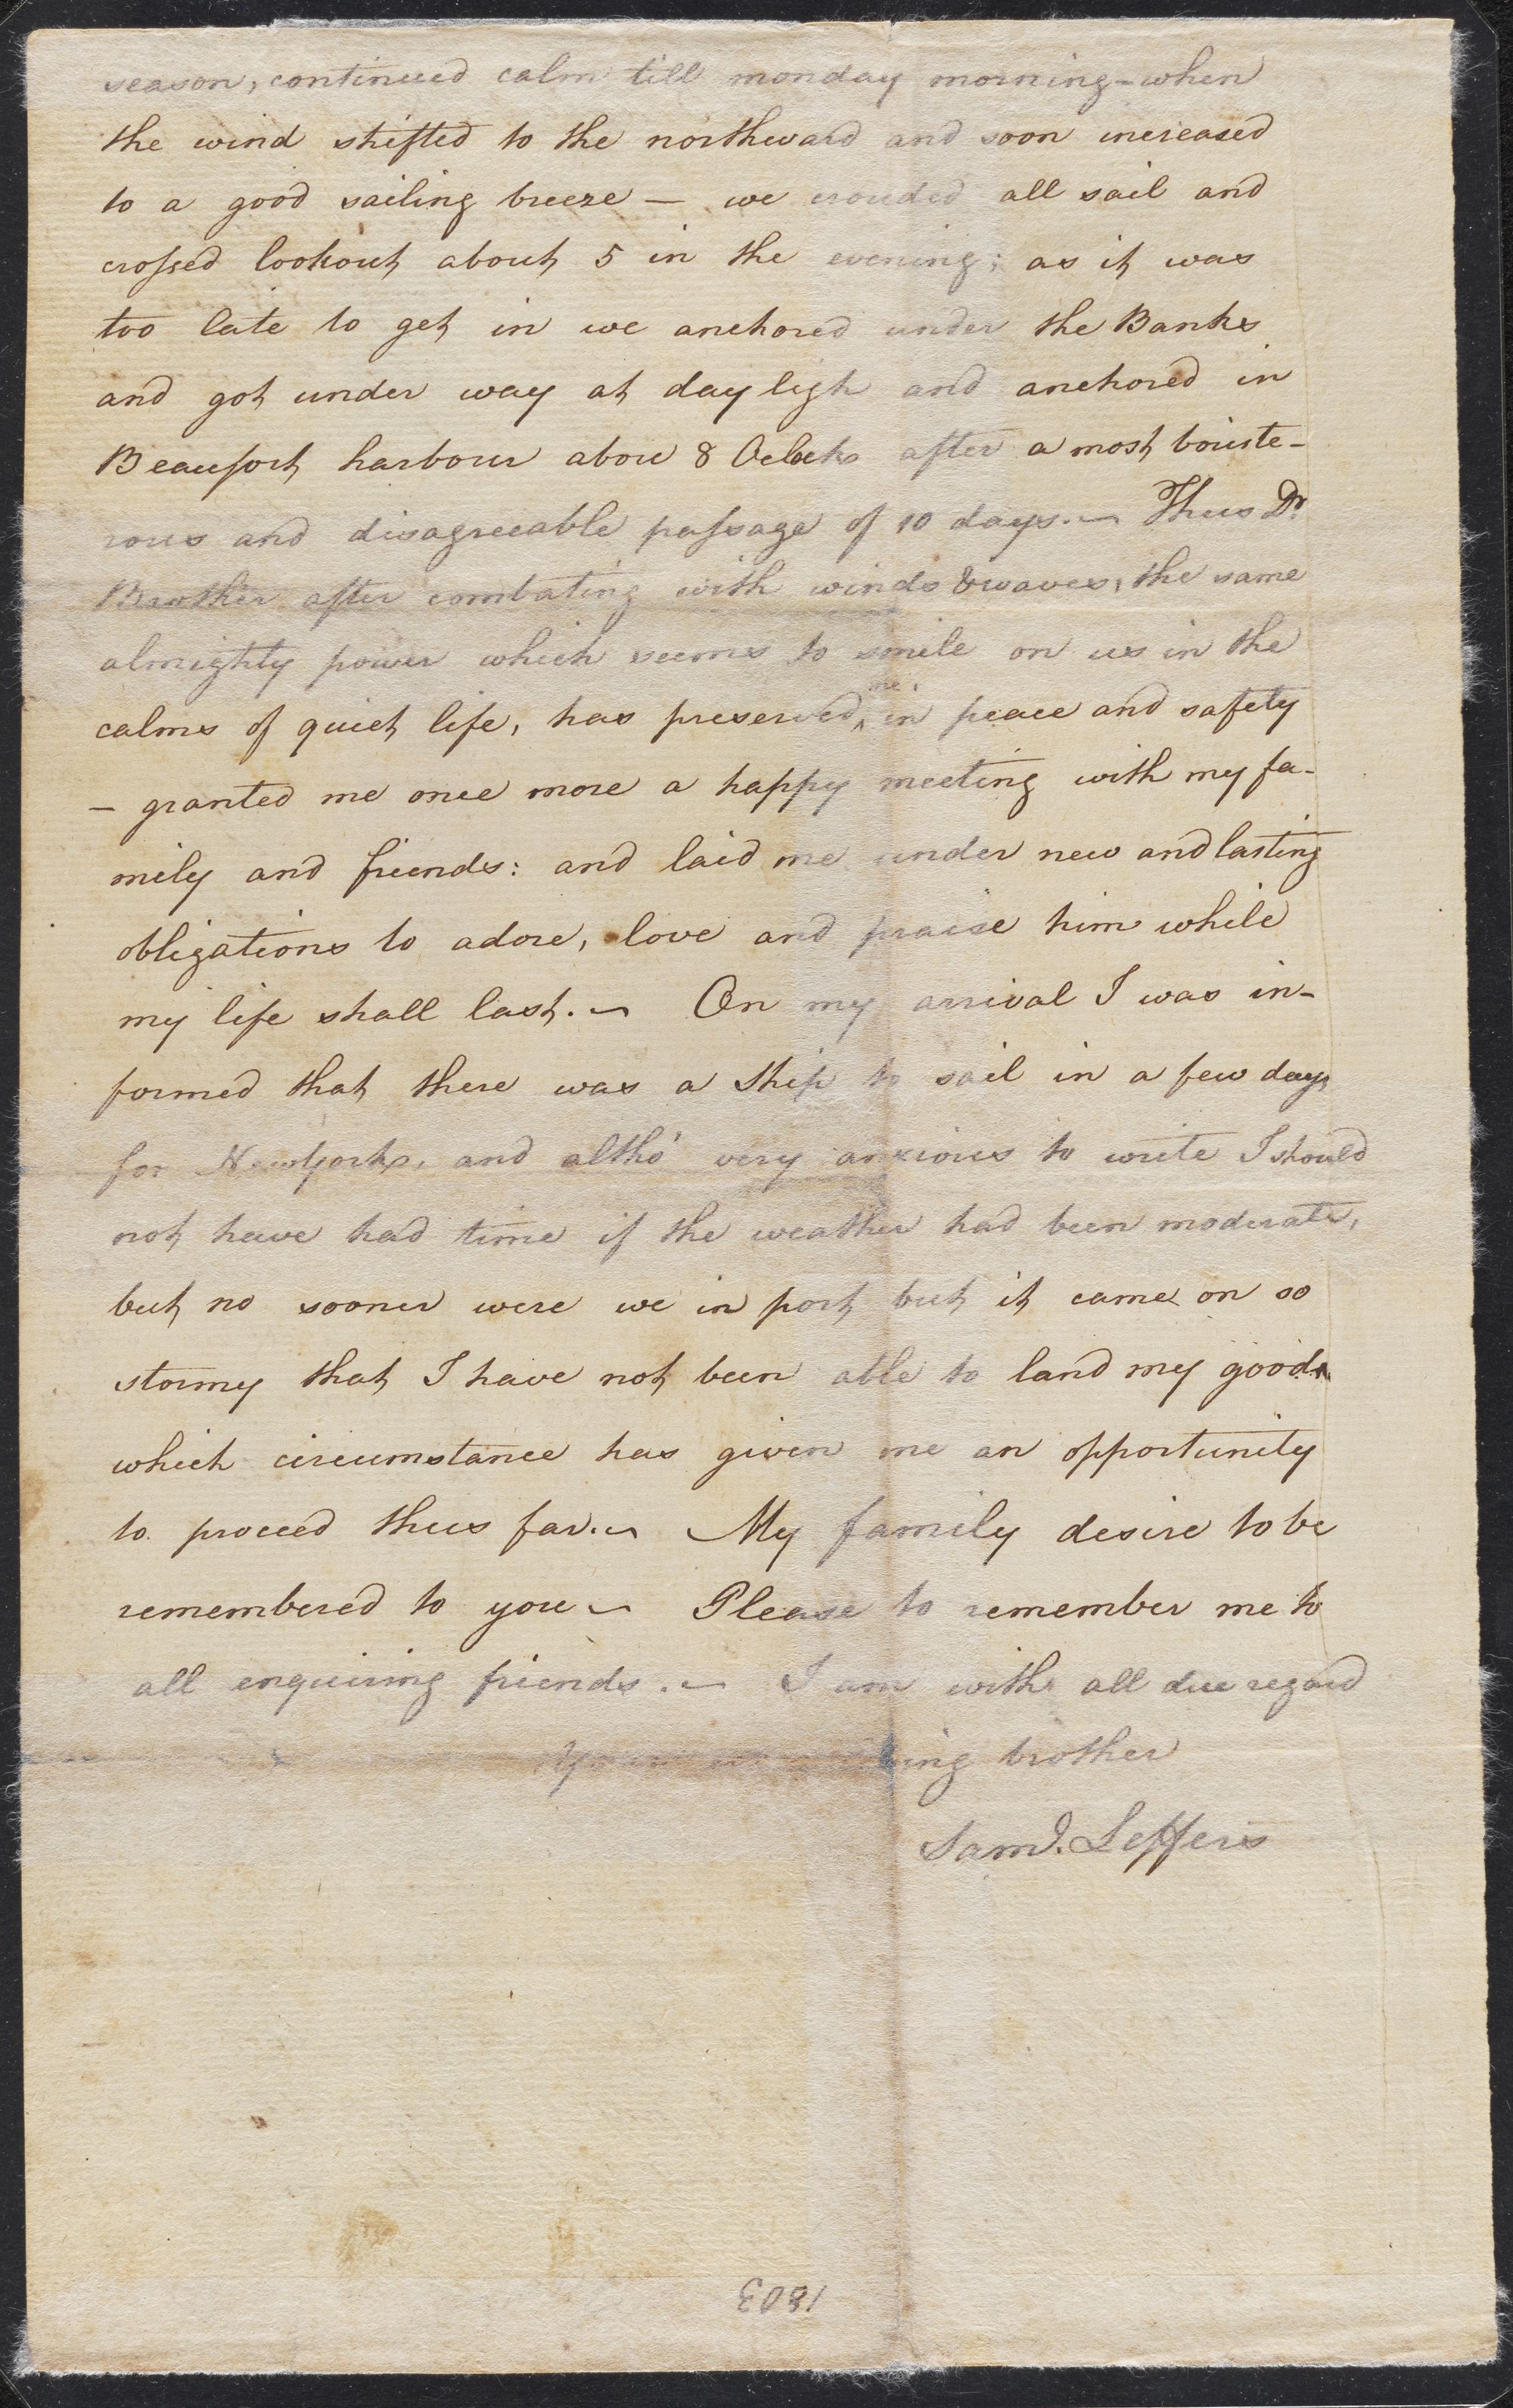 season, continued calm till monday morning - when
the wind shifted to the northward and soon increased
to a good sailing breeze — we crouded all sail and
crossed lookout about 5 in the evening; as it was
too late to get in we anchored under the Banks
and got under way at day ligh and anchored in
Beaufort harbour abou 8 Oclock after a most boiste-
rous and disagreeable passage of 10 days. — Thus Dr
Brother after combating with winds & waves, the same
almighty power which seems to smile on us in the
calms of quiet life, has preserved me in peace and safety
— granted me once more a happy meeting with my fa-
mily and friends: and laid me under new and lasting
obligations to adore, love and praise him while
my life shall last. — On my arrival I was in-
formed that there was a Ship to sail in a few days
for Newyork, and altho' very anxious to write I should
not have had time if the weather had been moderate,
but no sooner were we in port but it came on so
stormy that I have not been able to land my goods
which circumstance has given me an opportunity
to proceed thus far. — My family desire to be
remembered to you — Please to remember me to
all enquiring friends. — I am with all due regard
brother
Saml. Leffers
1803